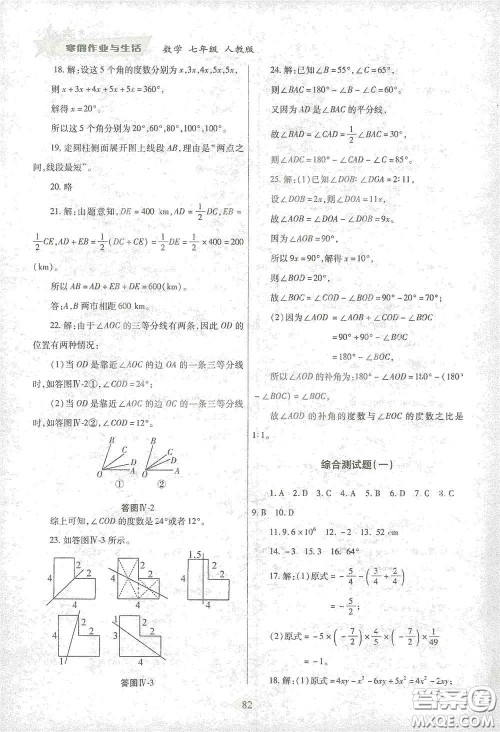 寒假作业与生活 数学 七年级 人教版
18. 解:设这5个角的度数分别为x,3x,4x,5x,5x,
则x+3x+4x+5x+5x=360°,
解得x=20°.
所以这5个角分别为20°,60°,80°,100°,100°.
19. 走圆柱侧面展开图上线段AB,理由是“两点之
间,线段最短”.
20. 略
21. 解:由题意知,DE=400 km,AD=1/2DC,EB=
1/2CE,AD+EB=1/2(DC+CE)=1/2DE=1/2×400=200
(km).
所以AB=AD+EB+DE=600(km).
答:A,B两市相距600 km.
22. 解:由于∠AOC的三等分线有两条,因此OD的
位置有两种情况:
(1)当OD是靠近∠AOC的边OA的一条三等分线
时,如答图Ⅳ-2①,∠COD=24°;
(2)当OD是靠近∠AOC的边OC的一条三等分线
时,如答图Ⅳ-2②,∠COD=12°.
B C D O A
①
B C D O A
②
答图Ⅳ-2
综上可知,∠COD的度数是24°或者12°.
23. 如答图Ⅳ-3所示.
2 2 4 4
2 2 4 4
1.5 2 2 4 4
2 2 4 4
1 2 2 3 4
答图Ⅳ-3
24. 解:(1)已知∠B=55°,∠C=65°,
则∠BAC=180°-∠B-∠C=60°.
又因为AD是∠BAC的平分线,
故∠BAD=∠CAD=1/2∠BAC=30°,
则∠ADC=180°-∠CAD-∠C=85°.
25. 解:(1)已知∠DOB:∠DOA=2:11,
设∠DOB=2x,则∠DOA=11x,
故∠AOB=∠DOA-∠DOB=9x.
因为∠AOB=90°,
所以9x=90°,解得x=10°.
故∠BOC=∠COD-∠DOB=90°-20°=70°.
(2)因为∠AOD=∠AOB+∠COD-∠BOC
=90°+90°-∠BOC
=180°-∠BOC,
所以∠AOD的补角为:180°-∠AOD=180°-(180°-
∠BOC)=∠BOC.
故∠AOD的补角的度数与∠BOC的度数之比是
1:1.
综合测试题(一)
1. A 2. D 3. C
9. B 10. D
11. 9.6×10⁶ 12. -2
14. -3 15. 16. 64°
17. 解:(1)原式=-5/4-(3/4+2/4)
=-5/2;
(2)原式=-5×(-7/2)×4/5×(-7/2)×1/49
18. 解:(1)原式=4xy-x²-6xy+5x²=4x²-2xy;
82